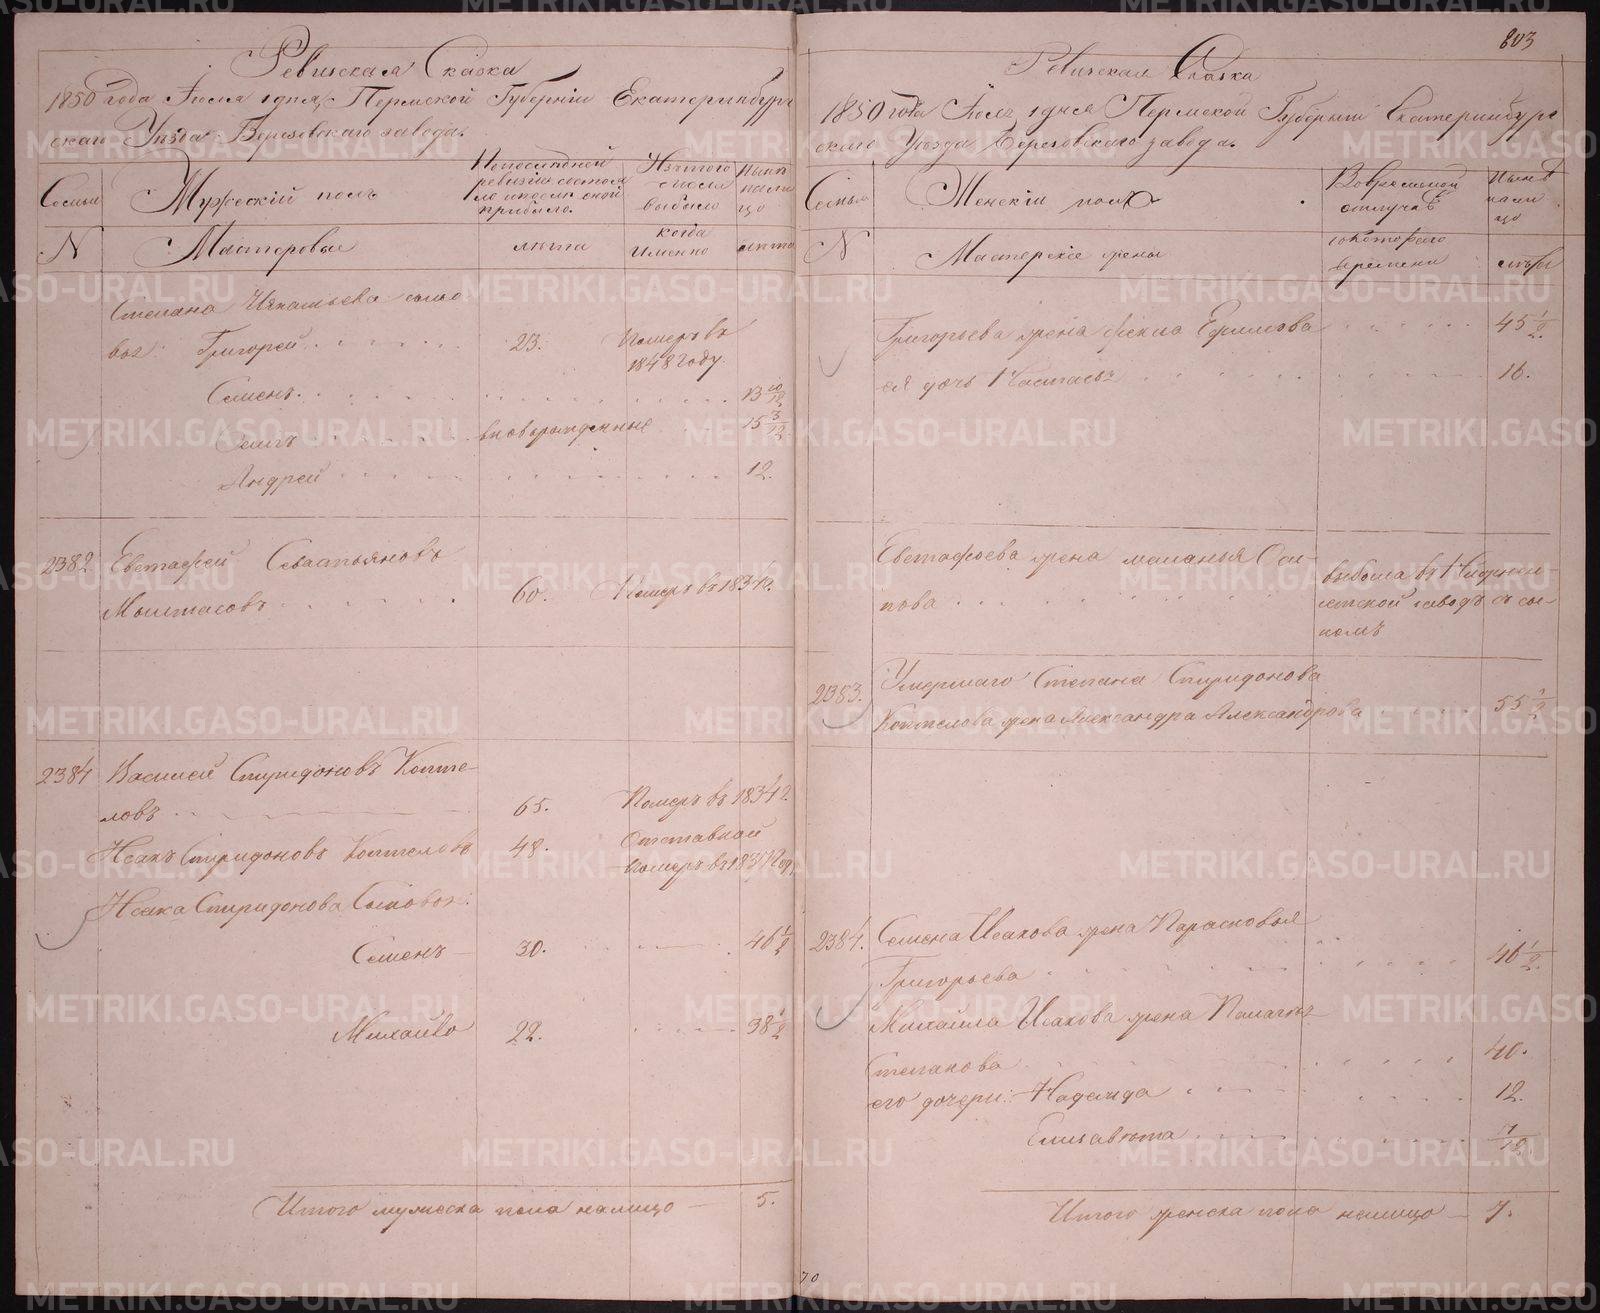 Ревизская Сказка
1850 года Июля 1 дня, Пермской Губернiи Екатеринбург
скаго Уѣзда Березовскаго завода.
Семьи
Мужескiй полъ
По последней
ревизiи состоя
ло и после оной
прибыло.
Изъ того
числа
выбыло
Нынѣ
на ли
цо
N
Мастеровые
лѣта
когда
Именно
лѣта
Степана сыно
вья: Григорей 23. Померъ въ
1848 году.
Семенъ 13 10/12
вноворожденные 15 3/12
Андрей 12.
2382 Евстафей Севастьяновъ
60. Померъ въ 1834 г.
2384 Василей Спиридоновъ Копте-
ловъ 65. Померъ въ 1834 г.
Исакъ Спиридоновъ Коптеловъ 48. Отставной
померъ въ 1837 год.
Исака Спиридонова Сыновья:
Семенъ 30. 46 1/2
Михайло 22. 38 1/2
Итого мужеска пола налицо 5.
803
Ревизская Сказка
1850 года Июля 1 дня Пермской Губернiи Екатеринбург
скаго Уѣзда Березовскаго завода.
Семьи
Женскiй полъ
Во временной
отлучкѣ
Нынѣ
нали
цо
N
Мастерскiе жены
съ котораго
времени
лѣты
Григорьева жена Фекла Ефимова 45 1/2.
ея дочь Настасья 16.
Евстафьева жена Маланья Оси-
пова выбыла въ
заводъ съ сы-
номъ
2383. Умершаго Степана Спиридонова
Коптелова жена Александра Александрова 55 1/2
2384. Семена Исакова жена Парасковья
Григорьева 46 1/2.
Михайла Исакова жена Палагѣя
Степанова 40.
его дочери: Надежда 12.
Елисавѣта 11/12.
Итого женска пола налицо 7.
70
METRIKI.GASO-URAL.RU